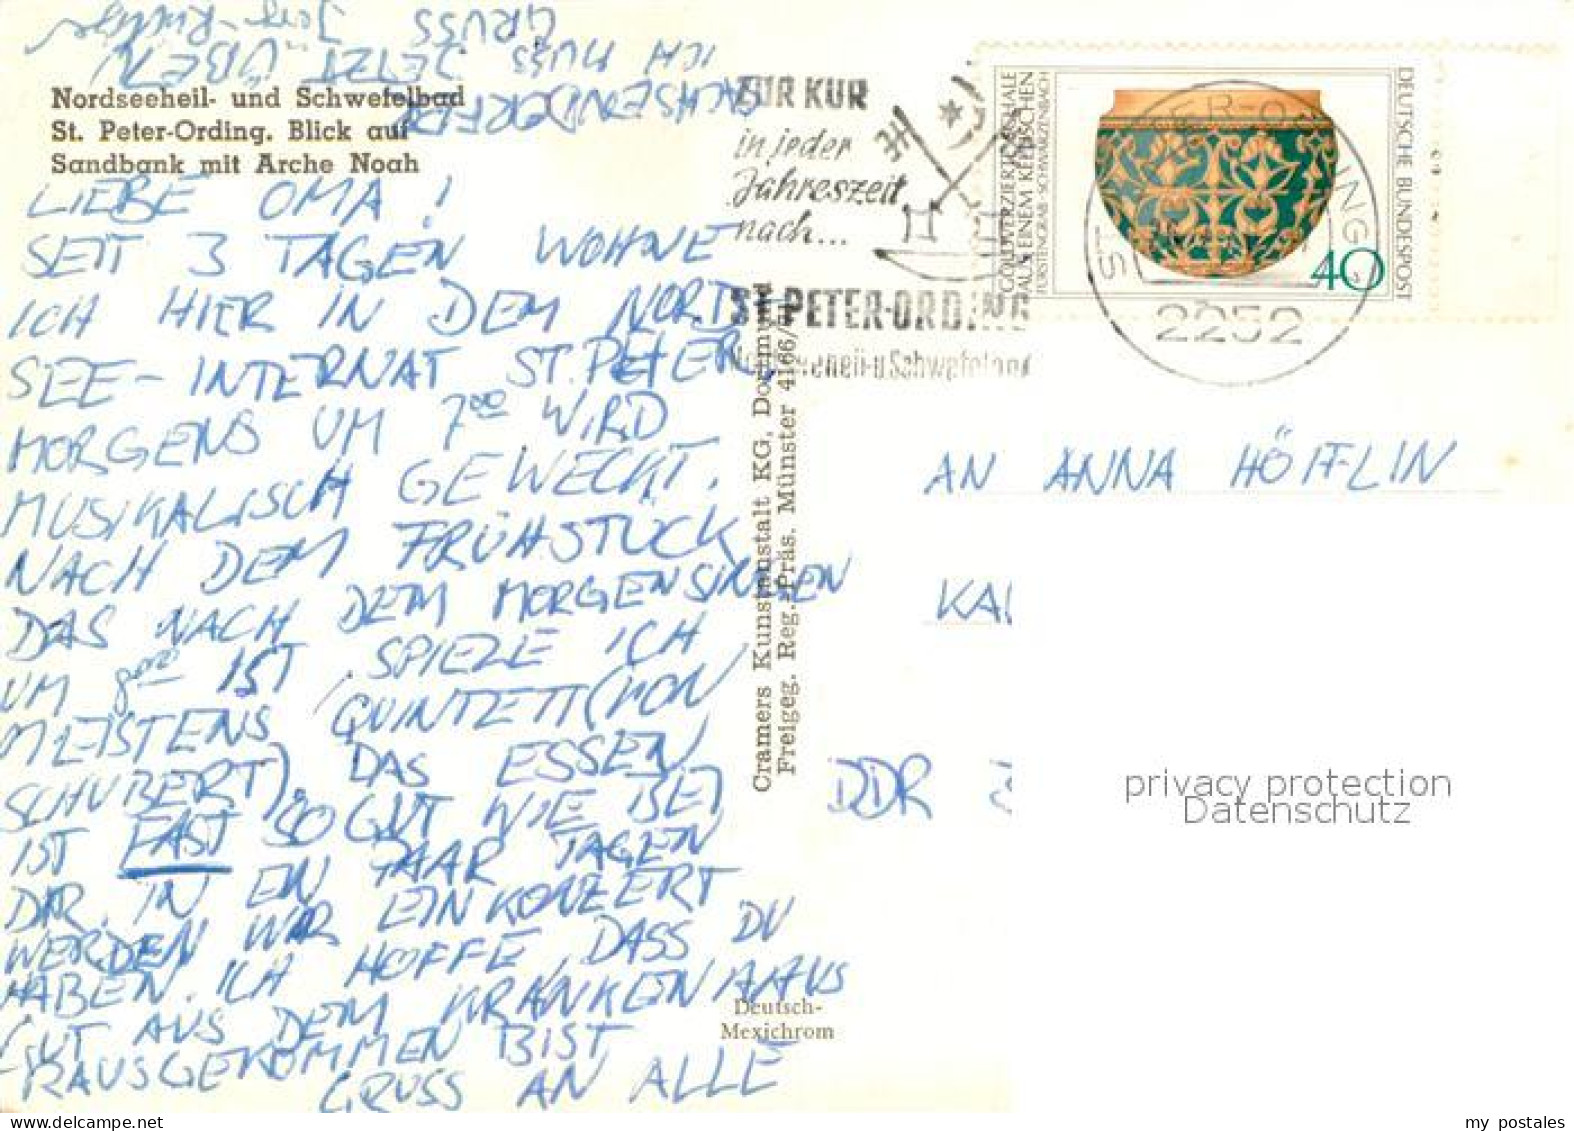 GRUSS
ICH MUSS JETZT ÜBEN
Nordseeheil- und Schwefelbad
St. Peter-Ording. Blick auf
Sandbank mit Arche Noah
LIEBE OMA!
SEIT 3 TAGEN WOHNE
ICH HIER IN DEM NORD-
SEE-INTERNAT ST. PETER.
MORGENS UM 7⁰⁰ WIRD
MUSIKALISCH GEWECKT.
NACH DEM FRÜHSTÜCK
DAS NACH DEM MORGENSINGEN
UM IST, SPIELE ICH
MEISTENS QUINTETT (VON
SCHUBERT). DAS ESSEN
IST FAST SO GUT WIE BEI
DIR. IN EIN PAAR TAGEN
WERDEN WIR EIN KONZERT
HABEN. ICH HOFFE, DASS DU
GUT AUS DEM KRANKENHAUS
RAUSGEKOMMEN BIST
GRUSS AN ALLE
Cramers Kunstanstalt KG, Dortmund
Freigeg. Reg. Präs. Münster 4166/
Deutsch-
Mexichrom
ZUR KUR
in jeder
Jahreszeit
nach...
ST. PETER-ORDING
GOLDVERZIERTE SCHALE
AUS EINEM KELTISCHEN
FÜRSTENGRAB · SCHWARZENBACH
DEUTSCHE BUNDESPOST
40
2252
AN ANNA HÖFFLIN
DDR
privacy protection
Datenschutz
my postales